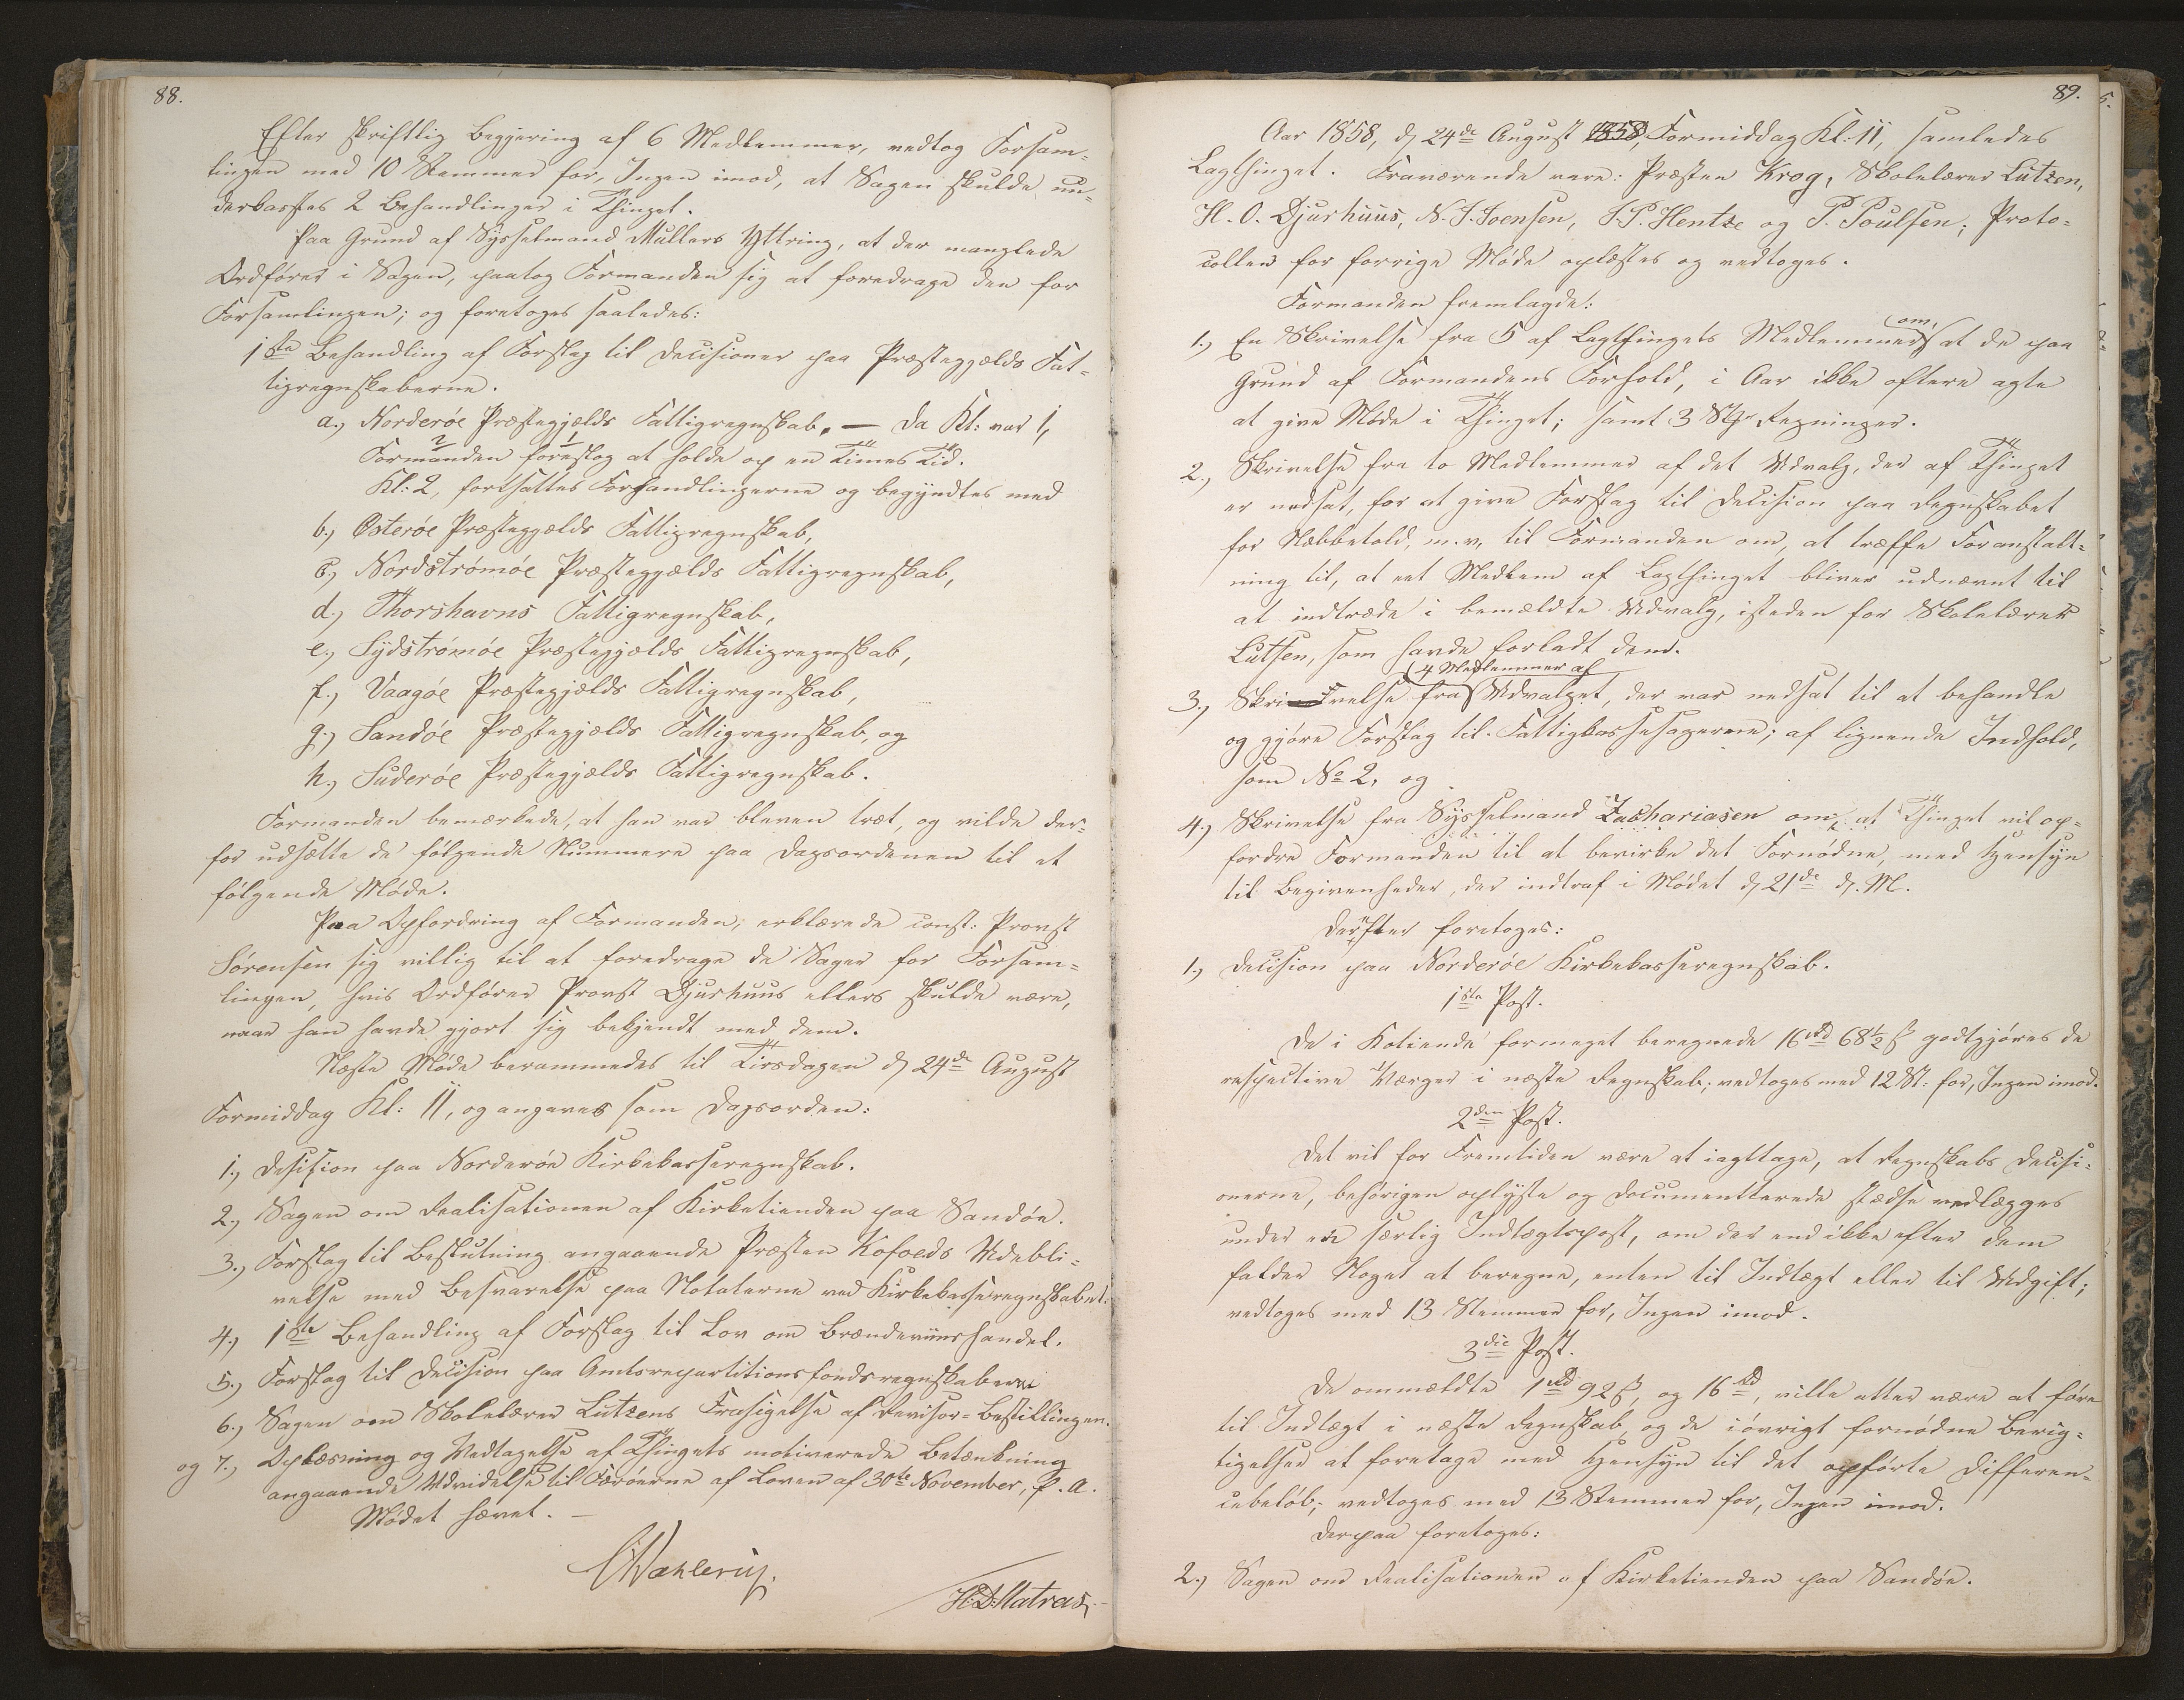 88.
Efter skriftlig Begjering af 6 Medlemmer, vedtog Forsam-
lingen med 10 Stemmer for, Ingen imod, at Sagen skulde un-
derkastes 2 Behandlinger i Thinget.
Paa Grund af Sysselmand Müllers Yttring, at der manglede
Ordförer i Sagen, paatog Formanden sig at foredrage den for
Forsamlingen; og foretoges saaledes:
1ste Behandling af Forslag til Decisioner paa Præstegjelds Fat-
tigregnskaberne.
a.) Norderöe Præstegjælds Fattigregnskab. — Da Kl: var 1,
2 1
Formanden foreslog at holde op en Times Tid.
Kl: 2, fortsattes Forhandlingerne og begyndtes med
b.) Österöe Præstegjælds Fattigregnskab,
c.) Nordströmöe Præstegjælds Fattigregnskab,
d.) Thorshavns Fattigregnskab,
e.) Sydströmöe Præstegjælds Fattigregnskab,
f.) Vaagöe Præstegjælds Fattigregnskab,
g.) Sandöe Præstegjælds Fattigregnskab, og
h.) Suderöe Præstegjælds Fattigregnskab.
Formanden bemærkede, at han var bleven træt, og vilde der-
for udsætte de fölgende Nummere paa Dagsordenen til et
fölgende Möde.
Paa Opfordring af Formanden, erklærede const: Provst
Sörensen sig villig til at foredrage de Sager for Forsam-
lingen, hvis Ordförer Provst Djurhuus ellers skulde være,
naar han havde gjort sig bekjendt med dem.
Næste Möde berammedes til Tirsdagen d. 24de August
Formiddag Kl: 11, og angaves som Dagsorden:
1.) Desision paa Norderöe Kirkekasseregnskab.
2.) Sagen om Realisationen af Kirketienden paa Sandöe.
3.) Forslag til Beslutning angaaende Præsten Kofoeds Udebli-
velse med Besvarelse paa Notaterne ved Kirkekasseregnskabet.
4.) 1ste Behandling af Forslag til Lov om Brændeviinshandel.
5.) Forslag til Decision paa Amtsrepartitionsfondsregnskaberne
6.) Sagen om Skolelærer Lützens Frasigelse af Revisor-Bestillingen.
og 7.) Oplæsning og Vedtagelse af Thingets motiverede Betænkning
angaaende Udvidelse til Færöerne af Loven af 30te November, f. A.
Mödet hævet. —
CDahlerup.
H.D.Matras.
89.
Aar 1858, d. 24de August 1858, Formiddag Kl: 11, samledes
Lagthinget. Fraværende vare: Præsten Krog, Skolelærer Lützen,
H. O. Djurhuus, N. J. Joensen, J. P. Hentze og P. Poulsen; Proto-
collen for forrige Möde oplæstes og vedtoges.
Formanden fremlagde:
om,
1.) En Skrivelse fra 5 af Lagthingets Medlemmer at de paa
Grund af Formandens Forhold, i Aar ikke oftere agte
at give Möde i Thinget; samt 3 Regninger.
2.) Skrivelse fra to Medlemmer af det Udvalg, der af Thinget
er nedsat, for at give Forslag til Decision paa Regnskabet
for Næbbetold, m. v. til Formanden om, at træffe Foranstalt-
ning til, at eet Medlem af Lagthinget bliver udnævnt til
at indtræde i bemældte Udvalg, isteden for Skolelærer
Lützen, som havde forladt dem.
4 Medlemmer af
3.) Skrivelse fra Udvalget, der var nedsat til at behandle
og gjöre Forslag til Fattigkassesagerne; af lignende Indhold,
som No 2, og
4.) Skrivelse fra Sysselmand Zachariasen om, at Thinget vil op-
fordre Formanden til at bevirke det Fornödne, med Hensyn
til Begivenheder, der indtraf i Mödet d. 21de d. M.
Derefter foretoges:
1.) Decision paa Norderöe Kirkekasseregnskab.
1ste Post.
De i Kotiende formeget beregnede 16 rd 68½ ß godtgjöres de
respective Værger i næste Regnskab; vedtoges med 12 St: for, Ingen imod.
2den Post.
Det vil for Fremtiden være at iagttage, at Regnskabs Decisi-
onerne, behörigen oplyste og documentterede stedse vedlægges
under en særlig Indtægtspost, om der end ikke efter dem
falder Noget at beregne, enten til Indtægt eller til Udgift;
vedtoges med 13 Stemmer for, Ingen imod.
3die Post.
De ommældte 1 rd 92 ß, og 16 rd, ville atter være at före
til Indtægt i næste Regnskab, og de iövrigt fornödne Berig-
tigelser at foretage med Hensyn til det opförte Differen-
cebelöb; vedtoges med 13 Stemmer for, Ingen imod.
Derpaa foretoges:
2.) Sagen om Realisationen af Kirketienden paa Sandöe.